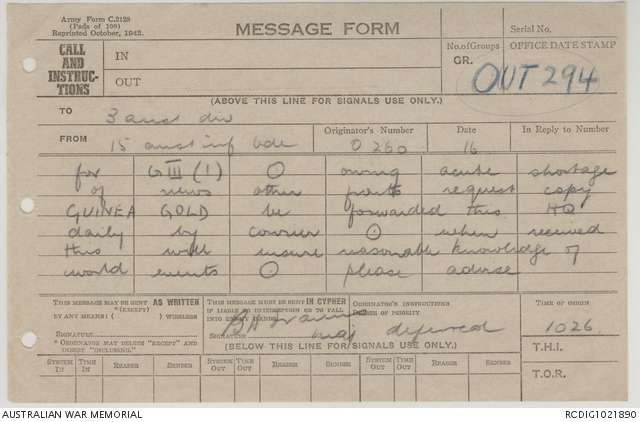 Army Form C.2128
(Pads of 100)
Reprinted October, 1942.
MESSAGE FORM
Serial No.
CALL AND INSTRUC-TIONS
IN
OUT
No. of Groups
GR.
OFFICE DATE STAMP
OUT 294
(ABOVE THIS LINE FOR SIGNALS USE ONLY.)
TO 3 aust div
FROM 15 aust inf bde
Originator's Number 0260
Date 16
In Reply to Number
for G III (1) O owing acute shortage
of news other fronts request copy
GUINEA GOLD be forwarded this HQ
daily by courier O when received
this will insure reasonable knowledge of
world events O please advise
THIS MESSAGE MAY BE SENT AS WRITTEN
(EXCEPT)
BY ANY MEANS ( ) WIRELESS
SIGNATURE
* ORIGINATOR MAY DELETE "EXCEPT" AND
INSERT "INCLUDING."
THIS MESSAGE MUST BE SENT IN CYPHER
IF LIABLE TO INTERCEPTION OR TO FALL
INTO ENEMY HANDS.
SIGNATURE
maj
ORIGINATOR'S INSTRUCTIONS
DEGREE OF PRIORITY
deferred
TIME OF ORIGIN
1026
(BELOW THIS LINE FOR SIGNALS USE ONLY.)
T.H.I.
T.O.R.
SYSTEM IN TIME IN READER SENDER SYSTEM OUT TIME OUT READER SENDER SYSTEM OUT TIME OUT READER SENDER
AUSTRALIAN WAR MEMORIAL
RCDIG1021890